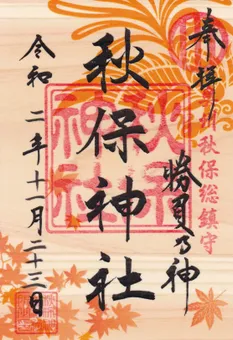 奉拝
秋保総鎮守
勝負乃神
秋保神社
秋保神社
令和二年十一月二十三日